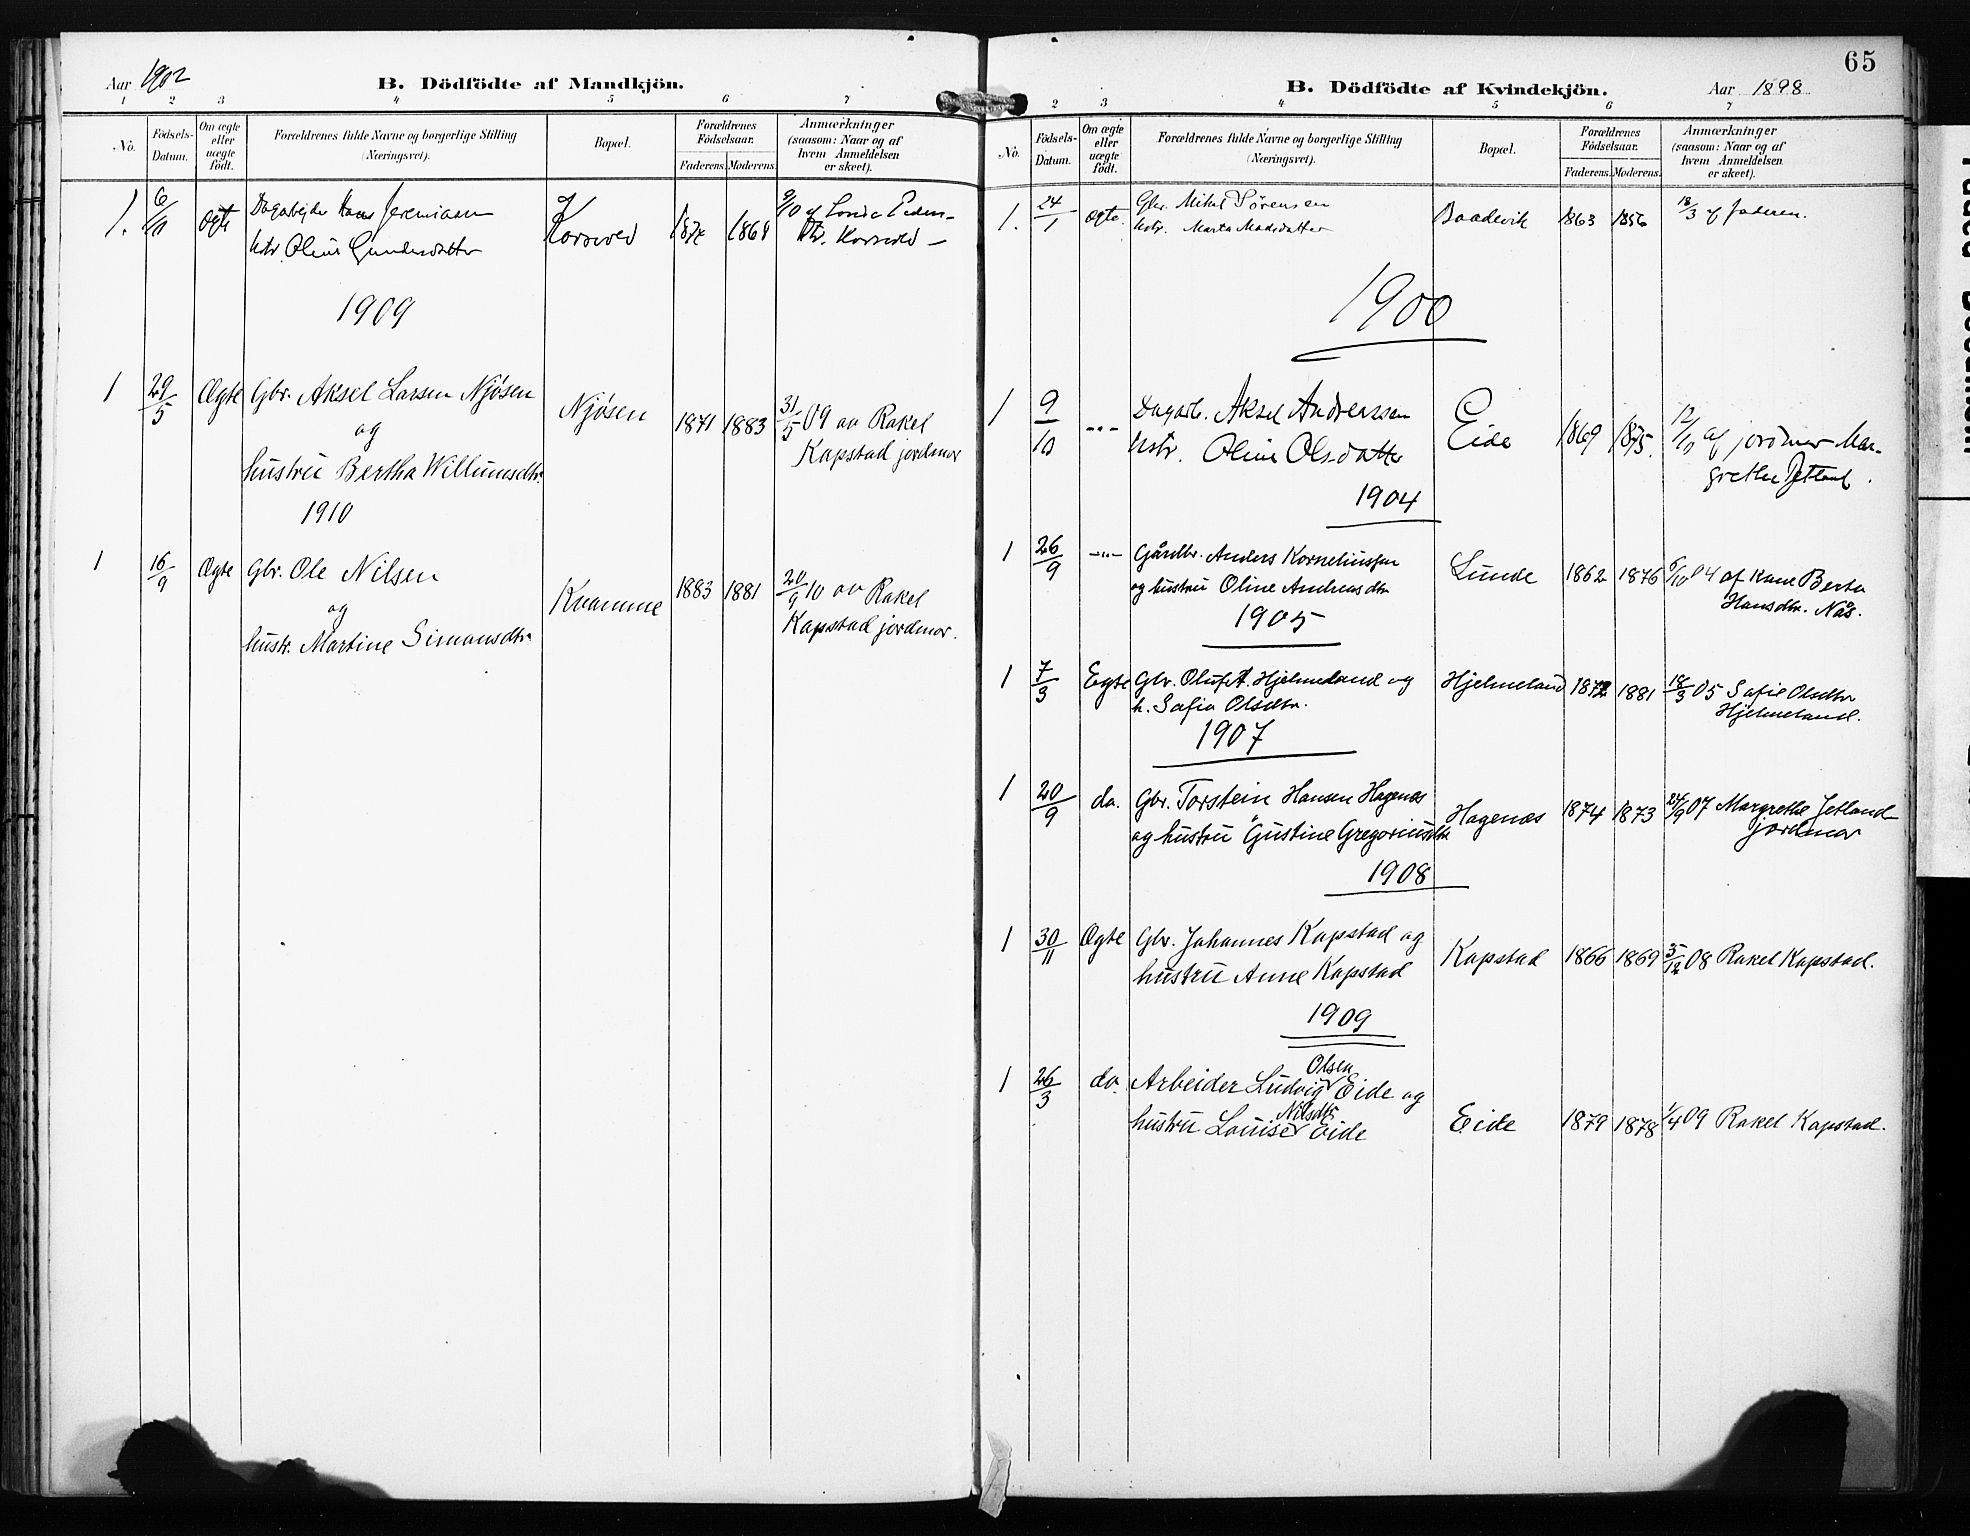 Aar 1902
B. Dödfödte af Mandkjön.
1 2 3 4 5 6 7
No.
Födsels-Datum.
Om ægte eller uægte födt.
Forældrenes fulde Navne og borgerlige Stilling (Næringsvei).
Bopæl.
Forældrenes Födselsaar.
Faderens. Moderens.
Anmærkninger (saasom: Naar og af hvem Anmeldelsen er skeet).
1. 6/10 Ægte Dagarbejder Hans Jeremiasen
hstr. Oline Gundersdatter
Korsvold 1868
9/10 af
Korsvold
1909
1 29/5 Ægte Gbr. Aksel Larsen Njøsen
og
hustru Bertha Willumsdtr.
Njøsen 1871 1883
31/5 09 av Rakel
Kapstad jordmor
1910
1 16/9 Ægte Gbr. Ole Nilsen
og
hustr. Martine Simonsdtr.
Kvamme 1883 1881
20/9 10 av Rakel
Kapstad jordmor.
65
B. Dödfödte af Kvindekjön.
Aar 1898
1 2 3 4 5 6 7
No.
Födsels-Datum.
Om ægte eller uægte födt.
Forældrenes fulde Navne og borgerlige Stilling (Næringsvei).
Bopæl.
Forældrenes Födselsaar.
Faderens. Moderens.
Anmærkninger (saasom: Naar og af hvem Anmeldelsen er skeet).
1. 24/1 Ægte. Gbr. Mikel Sörensen
hstr. Marta Madsdatter
Baadevik 1863 1856
18/3 af faderen.
1900
1 9/10 -"- Dagarb. Aksel Andreassen
hstr. Oline Olsdatter
Eide 1869 1875.
12/10 af jordmor Mar-
grethe Jetland.
1904
1 26/9 -"- Gårdbr. Anders Korneliussen
og hustru Oline Andreasdtr
Lunde 1862 1876
6/10 04 af Kone Berta
Hansdtr. Nås.
1905
1 7/3 Egte Gbr. Oluf A. Hjelmeland og
h. Safia Olsdtr.
Hjelmeland 1872 1881
18/3 05 Safie Olsdtr
Hjelmeland.
1907
1 20/9 do. Gbr. Torstein Hansen Hagenæs
og hustru Gustine Gregoriusdtr
Hagenæs 1874 1873
24/9 07 Margrethe Jetland
jordmor
1908
1 30/11 Ægte Gbr. Johannes Kapstad og
hustru Anne Kapstad
Kapstad 1866 1869
5/12 08 Rakel Kapstad.
1909
1 26/3 do. Arbeider Ludvig Olsen Eide og
hustru Louise Nilsdtr Eide
Eide 1879 1878
1/4 09 Rakel Kapstad.